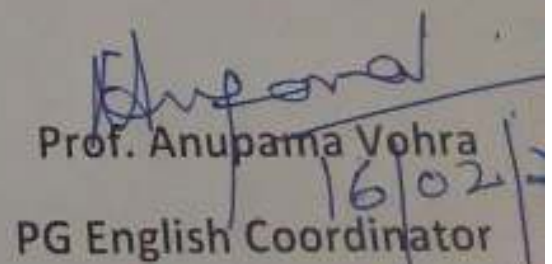 Anupama
Prof. Anupama Vohra
16/02/2
PG English Coordinator